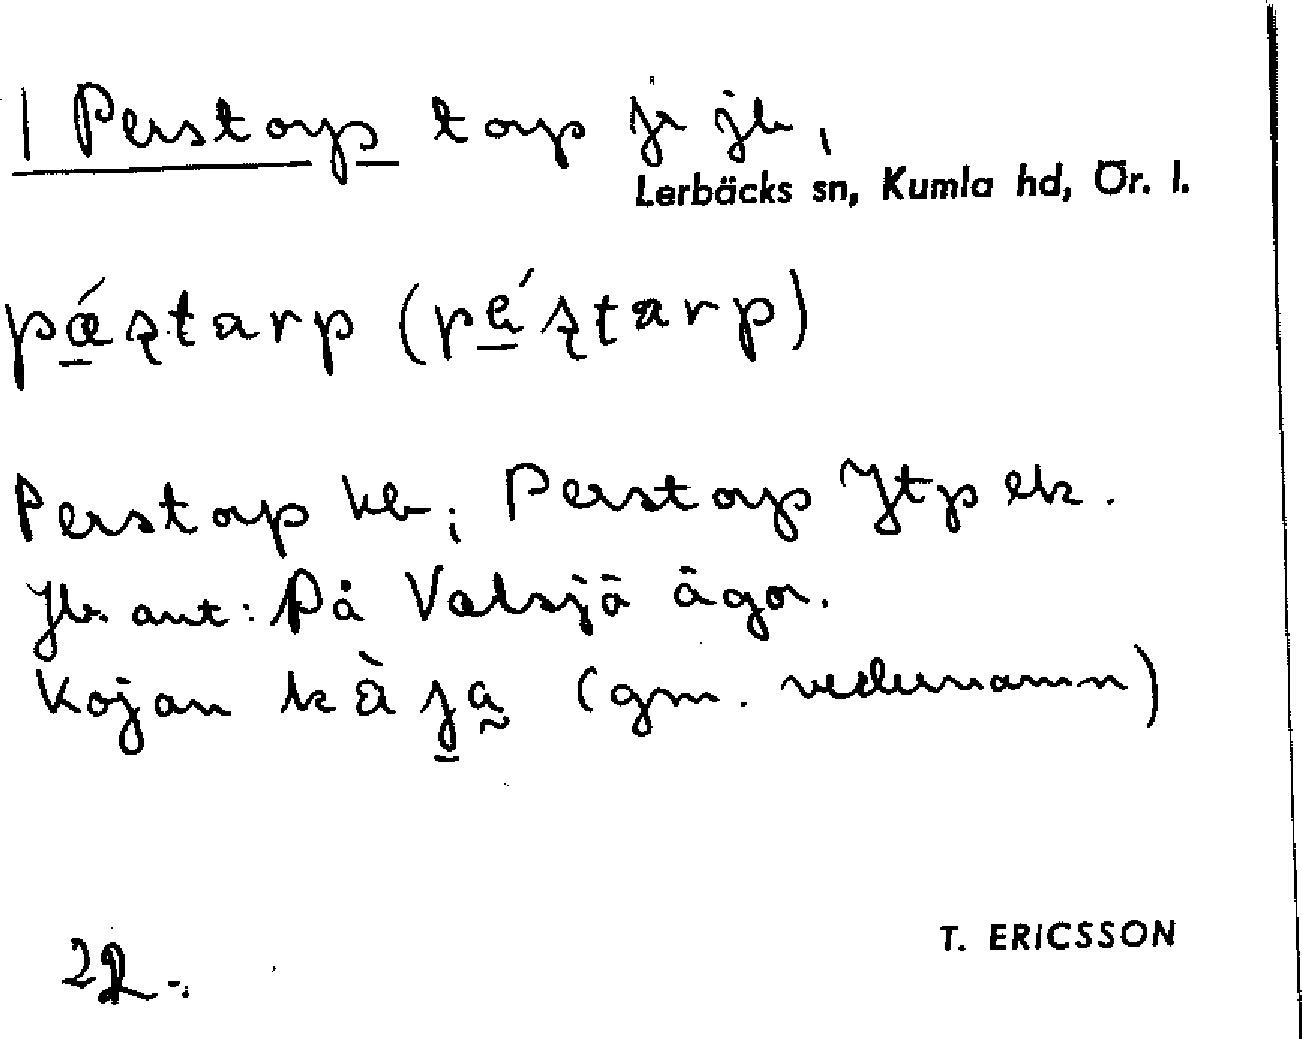 1 Perstorp torp fr jb,
Lerbäcks sn, Kumla hd, Ör. l.
pǽʂtarp (pé̱ʂtarp)
Perstorp kb; Perstorp Jtp ek.
Jb ant: På Valsjö ägor.
Kojan kàja (gm. vedernamn)
22.
T. ERICSSON